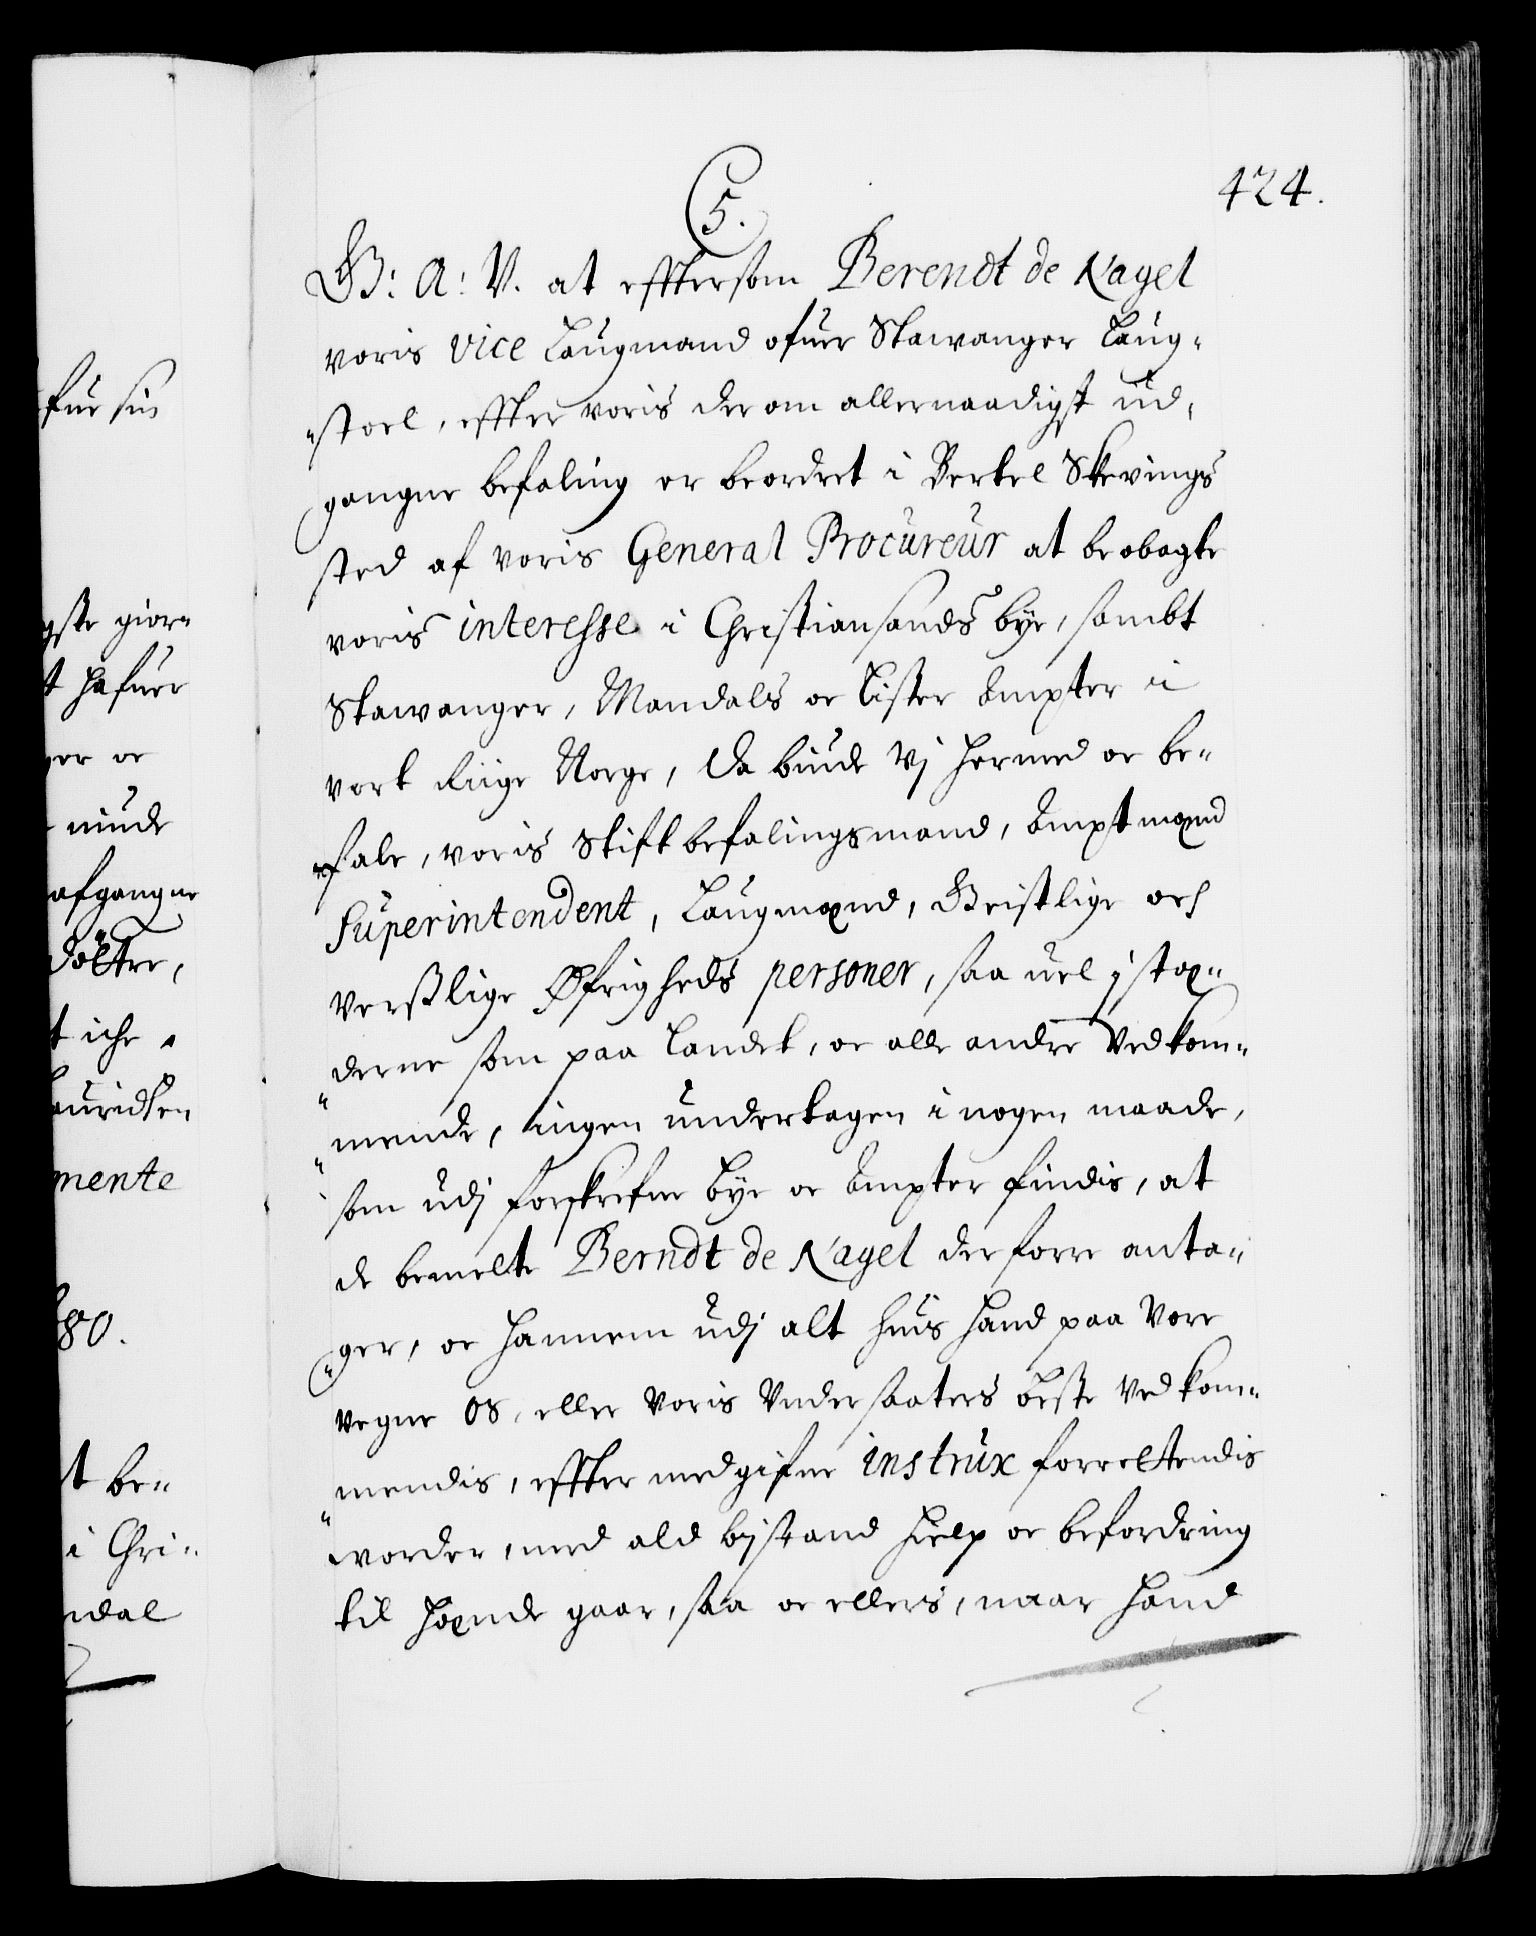 424.
5.
G: A: V. at efftersom Berendt de Nagel
voris vice Laugmand ofuer Stawanger Laug-
stoel, effter voris der om allernaadigst ud-
gangne befaling er beordret i Bertel Skevings
sted af voris General Procureur at beobagte
voris interesse i Christiansands bye, sambt
Stawanger, Mandals oc Lister Ampter i
vort Riige Norge, da biude Vj hermed oc be-
fale, voris Stiftbefalingsmand, Amptmænd
Superintendent, Laugmænd, Geistlige och
Verslige Øfrigheds personer, saa uel j stæ-
derne som paa Landet, oc alle andre Vedkom-
mende, ingen undertagen i nogen maade,
som udj forskrefne bye oc Ampter findis, at
de bemelte Berndt de Nagel derforre anta-
ger, oc hannem udj alt huis hand paa Vore
vegne os, eller Voris Undersaaters beste Vedkom-
mendis, effter medgifne instrux forrettendis
worder, med ald bistand hielp oc befordring
til hænde gaar, saa oc ellers, naar hand
fur sin
gste gior-
t hafuer
ger oc
niude
afgangne
döttre,
t iche
auridsen
mente
80.
t be-
i Chri-
ndal